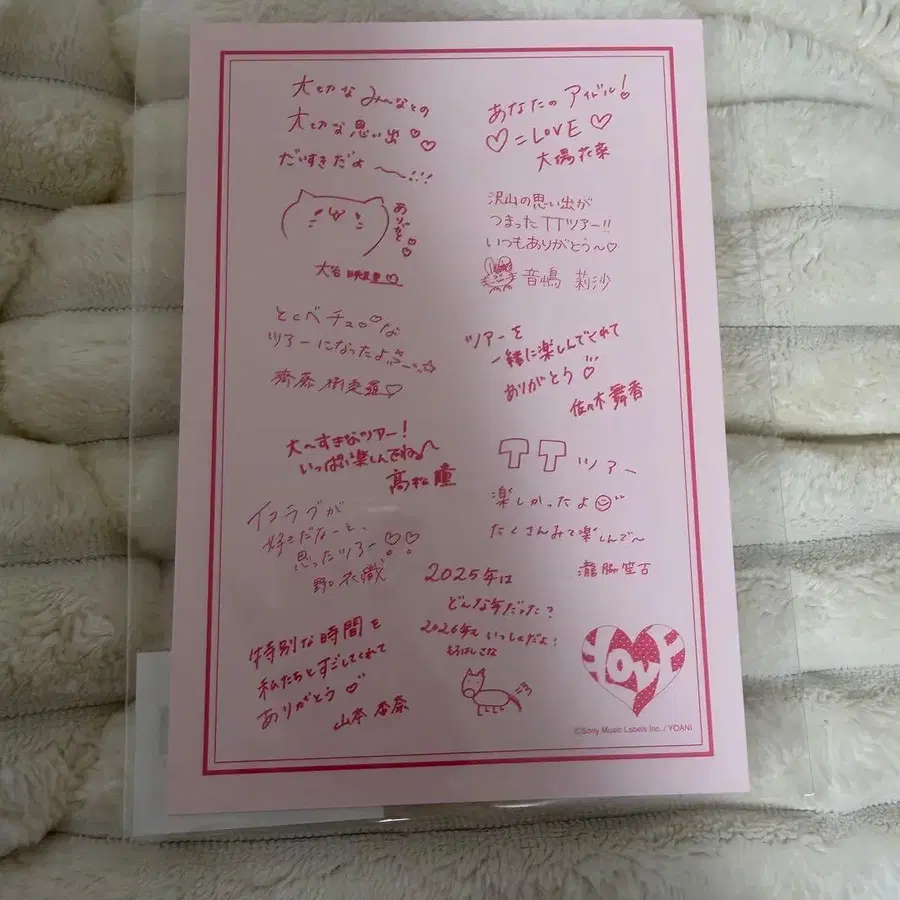 大切な みーなとの
大切な思い出♡♡
だいすきだよ〜!!!
ありがと♡♡
大谷映美里♡
とくべチュ♡な
ツアーになったよ
齊藤 樹愛羅♡
大〜すきなツアー!
いっぱい楽しんでね
髙松瞳
イコラブが
好きだなーと、
思ったツアー♡♡
野口衣織
特別な時間を
私たちとすごしてくれて
ありがとう♡
山本 杏奈
あなたの アイドル!
♡=LOVE♡
大場花菜
沢山の思い出が
つまったTTツアー!!
いつもありがとう〜♡
音嶋 莉沙
ツアーを
一緒に楽しんでくれて
ありがとう♡
佐々木舞香
TTツアー
楽しかったよ
たくさんみて楽しんで〜
瀧脇笙古
2025年は
どんな年だった?
2026年もいっしょだよ!
もろはしさな
LOVE
©Sony Music Labels Inc. / YOANI